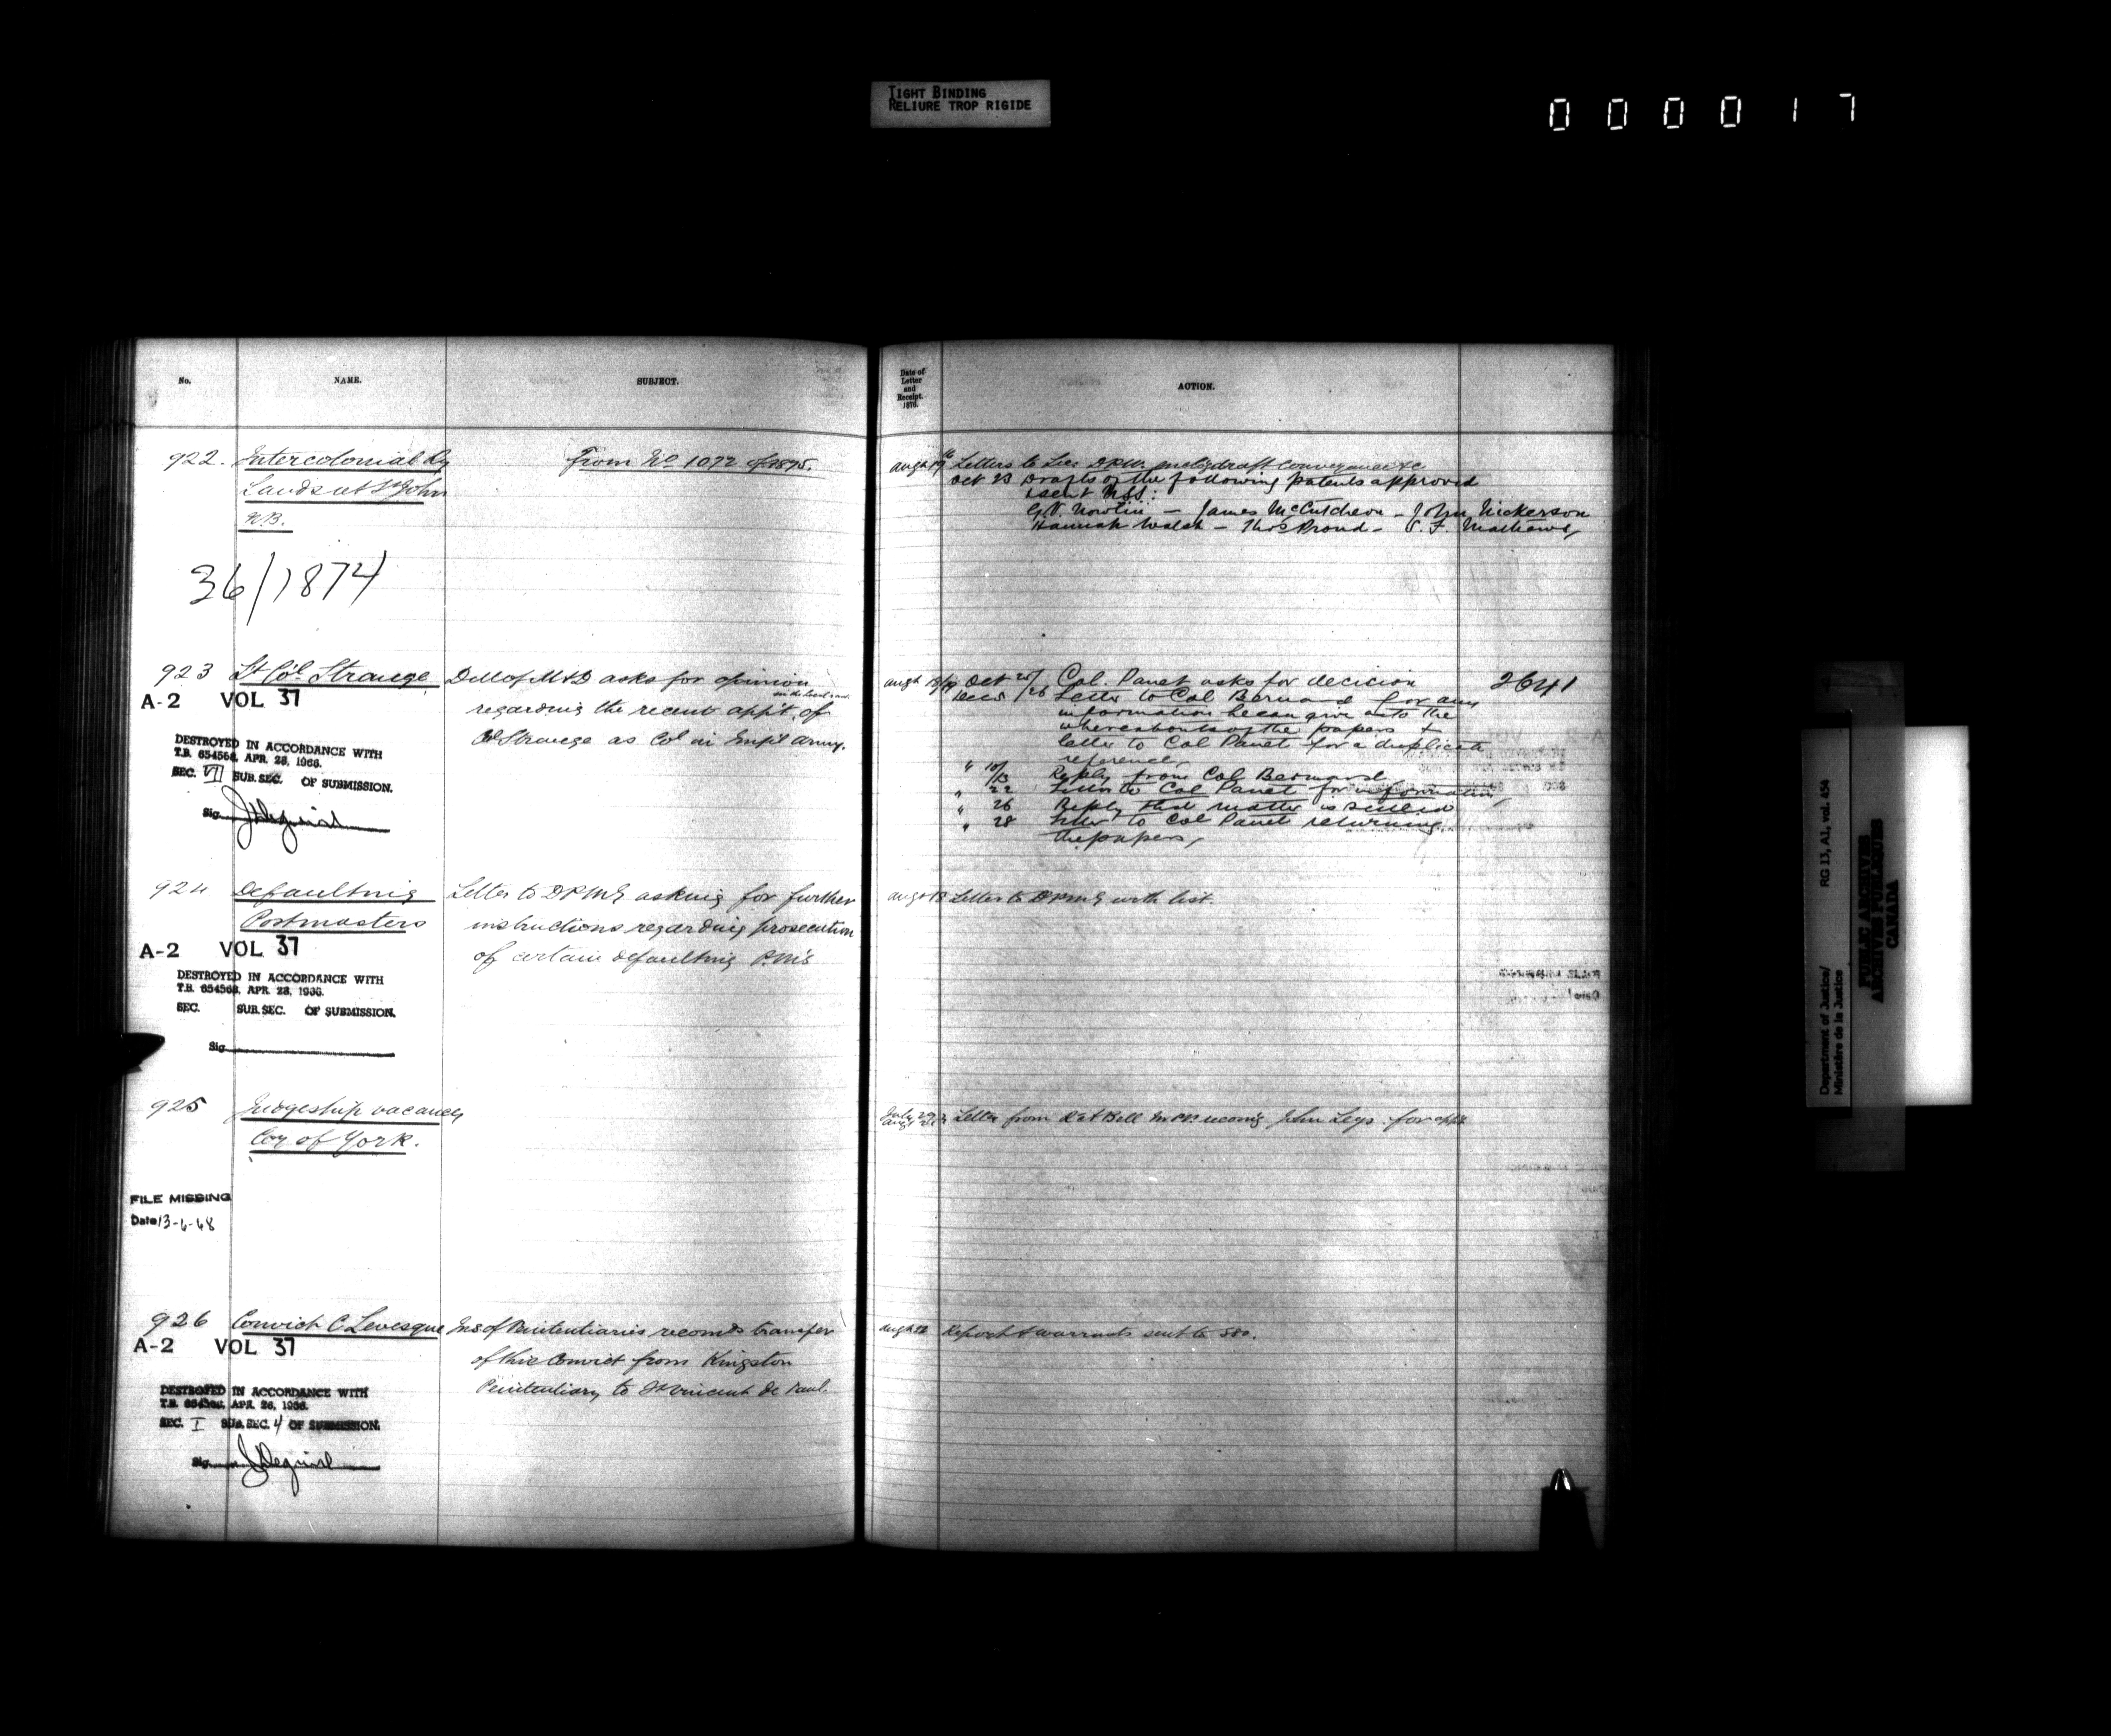 TIGHT BINDING
RELIURE TROP RIGIDE
000017
No. NAME. SUBJECT.
Date of
Letter
and
Receipt.
1876.
ACTION.
922. Intercolonial Ry From No 1072 of 1875.
Lands at St John
N.B.
36/1874
Augt 19 Letters to Sec DPW. enclosg draft conveyance &c
Oct 23 Drafts of the following patents approved
& sent
G.V. Nowlin — James McCutcheon — John Nickerson
Hannah Walsh — Thos Proud — F. Mathews,
923 Lt Col. Strange DM of M&D asks for opinion
regarding the recent appt. of
Col Strange as Col in Imp'l Army.
A-2 VOL 37
DESTROYED IN ACCORDANCE WITH
T.B. 654568, APR. 28, 1966.
SEC. VII SUB.SEC. OF SUBMISSION.
Sig.
Augt 18/19 Oct 25/ Col. Panet asks for decision 2641
Dec 5 /26 Letter to Col Bernard for any
information he can give as to the
whereabouts of the papers &
letter to Col Panet for a duplicate
reference,
" 10/
/13 Reply from Col Bernard
" 22 Letter to Col Panet for information,
" 26 Reply that matter is settled
" 28 Letter to Col Panet returning
the papers,
924 Defaulting Letter to DPMG asking for further
Postmasters instructions regarding prosecution
of certain defaulting P.M's
A-2 VOL 37
DESTROYED IN ACCORDANCE WITH
T.B. 654568, APR. 28, 1966.
SEC. SUB.SEC. OF SUBMISSION.
Sig.
Augt 18 Letter to DPMG with list.
925 Judgeship vacancy
Coy of York.
FILE MISSING
Date 13-6-68
July 29 Letter from Robt Bell M.P.P. recomg John Leys for appt
926 Convict C Levesque Ins of Penitentiaries recomds transfer
of this Convict from Kingston
Penitentiary to St Vincent de Paul.
A-2 VOL 37
DESTROYED IN ACCORDANCE WITH
T.B. 654568, APR. 28, 1966.
SEC. I SUB.SEC. 4 OF SUBMISSION.
Sig.
Augt Report & warrants sent to SS.
Department of Justice/
Ministère de la Justice
RG 13, A1, vol. 454
PUBLIC ARCHIVES
ARCHIVES PUBLIQUES
CANADA